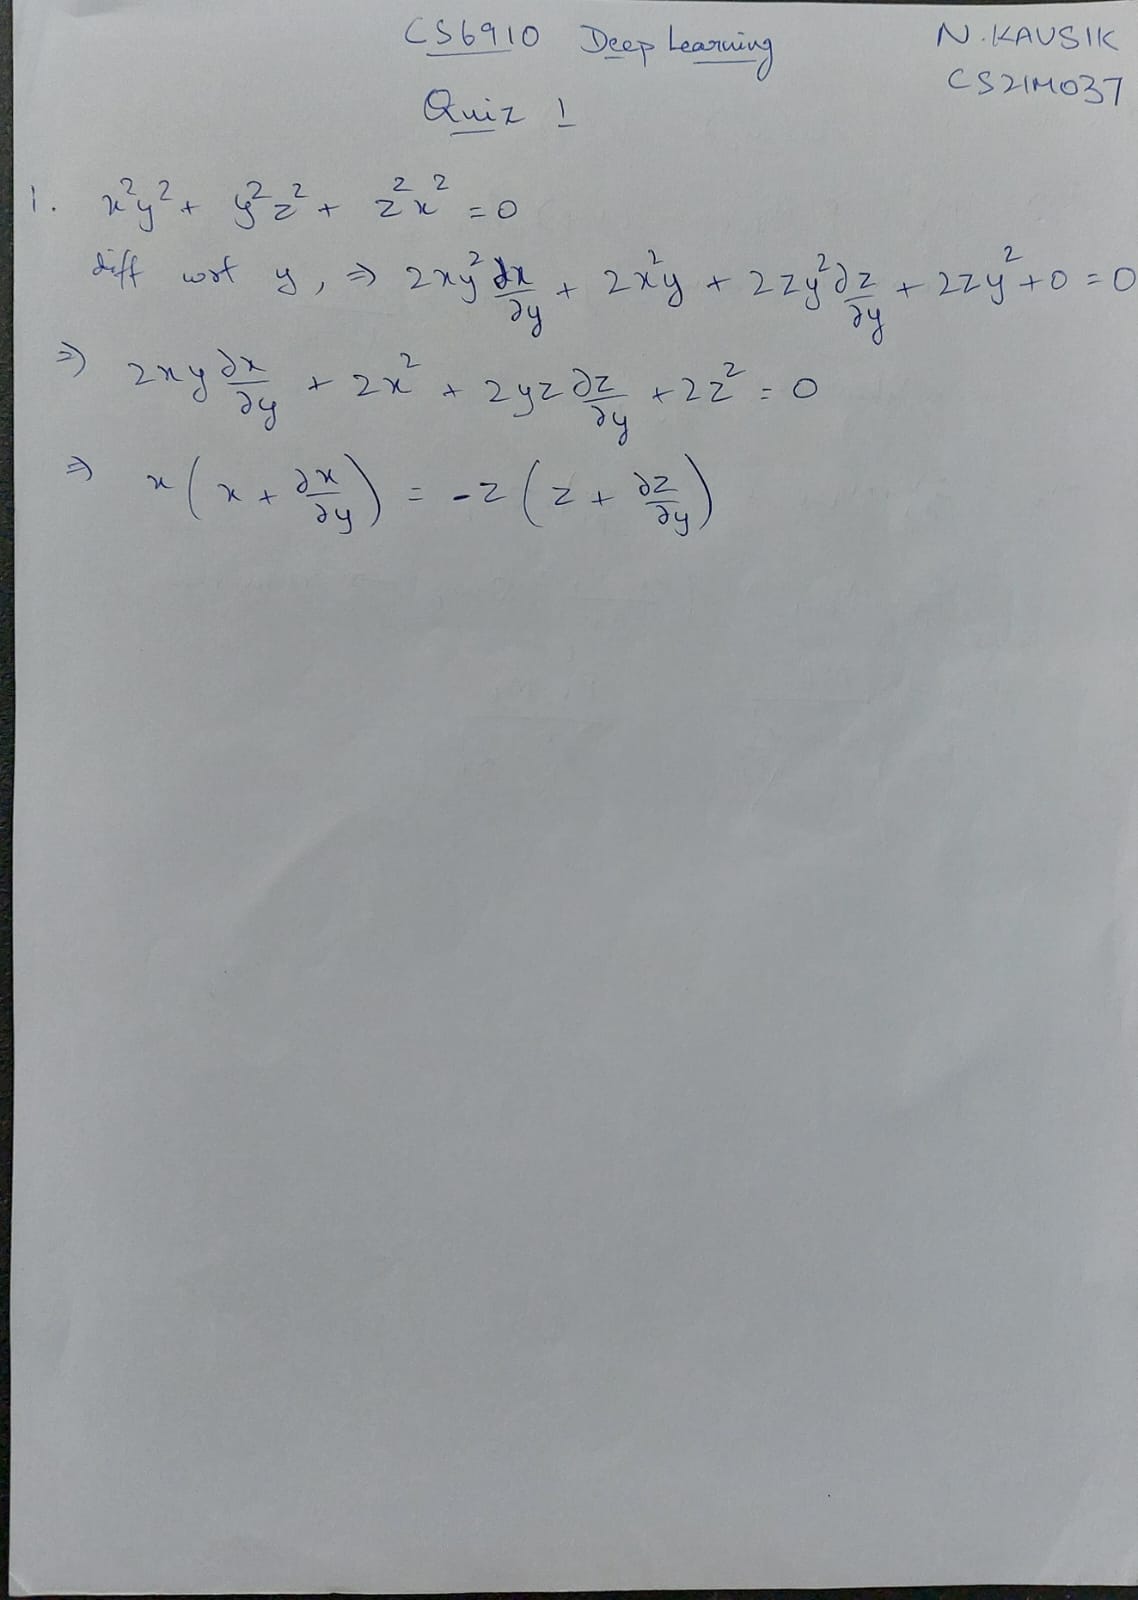 CS6910 Deep Learning
N. KAUSIK
CS21M037
Quiz 1
1. x²y² + y²z² + z²x² = 0
diff wrt y, ⇒ 2xy² ∂x/∂y + 2x²y + 2zy² ∂z/∂y + 2zy² + 0 = 0
⇒ 2xy ∂x/∂y + 2x² + 2yz ∂z/∂y + 2z² = 0
⇒ x(x + ∂x/∂y) = -z(z + ∂z/∂y)